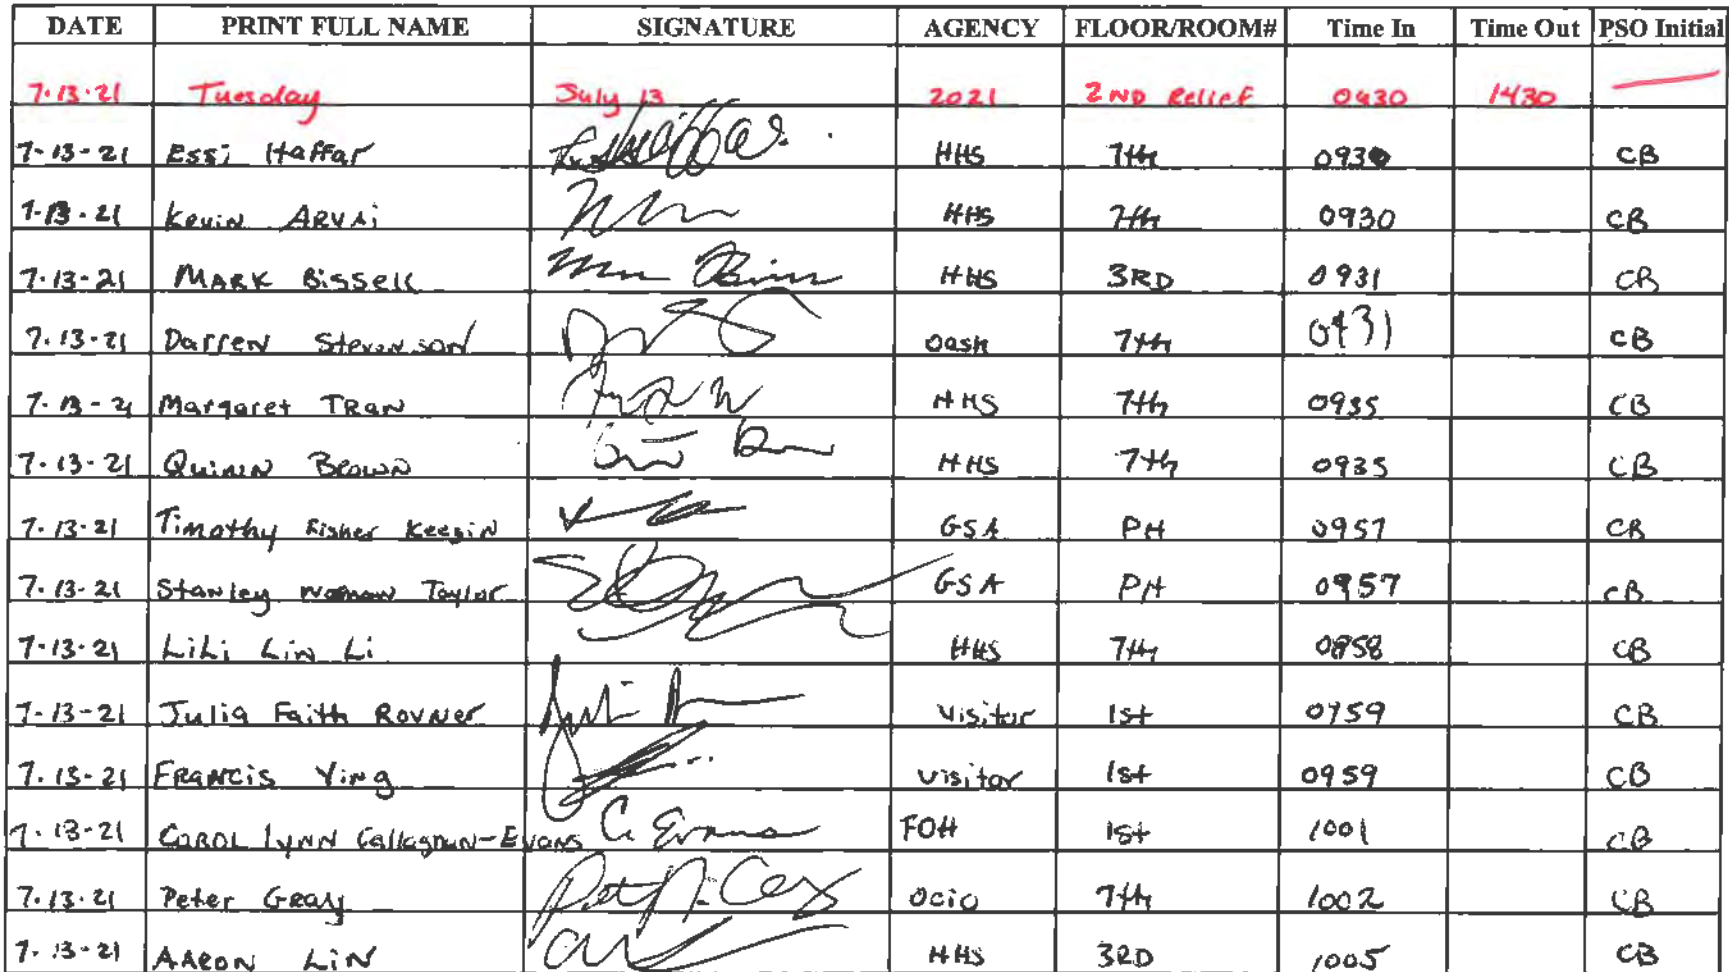 DATE PRINT FULL NAME SIGNATURE AGENCY FLOOR/ROOM# Time In Time Out PSO Initial
7.13.21 Tuesday July 13 2021 2ND Relief 0930 1430
7-13-21 Essi Haffar HHS 7th 0930 CB
7-13-21 Kevin ARVAi HHS 7th 0930 CB
7-13-21 MARK Bissell HHS 3RD 0931 CB
7.13-21 Darren Stevenson Oash 7th 0931 CB
7-13-21 Margaret TRAN HHS 7th 0935 CB
7-13-21 Quinn Brown HHS 7th 0935 CB
7-13-21 Timothy Fisher Keegin GSA PH 0957 CB
7-13-21 Stanley Taylor GSA PH 0957 CB
7-13-21 LiLi Lin Li HHS 7th CB
7-13-21 Julia Faith Rovner Visitor 1st CB
7.13-21 FRANCIS Ying visitor 1st 0959 CB
7-13-21 CAROL LyNN -Evans C. Evans FOH 1st 1001 CB
7.13.21 Peter Ocio 7th 1002 CB
7-13-21 AARON LiN HHS 3RD 1005 CB